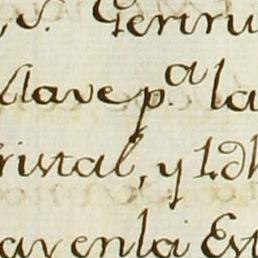 , S. Gertru
clave p.ª la
ristal, y 1 dh
ar en la Est